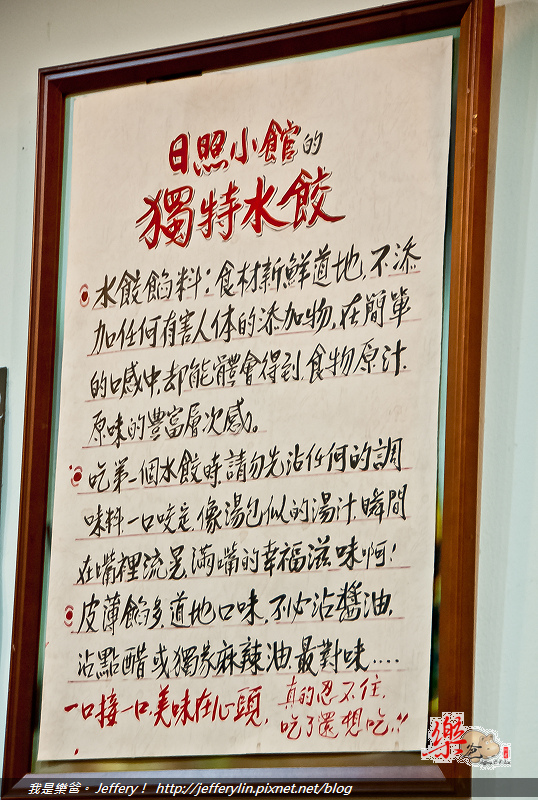 日照小館的
獨特水餃
水餃餡料:食材新鮮道地,不添
加任何有害人体的添加物,在簡單
的口感中,却能體會得到,食物原汁,
原味的豐富層次感。
吃第一個水餃時,請勿先沾任何的調
味料一口咬定,像湯包似的湯汁,瞬間
在嘴裡流晃,滿嘴的幸福滋味啊!
皮薄餡多,道地口味,不必沾醬油,
沾點醋或獨家麻辣油,最對味....
一口接一口,美味在心頭,
真的忍不住,
吃了還想吃!!
樂爸
我是樂爸。Jeffery! http://jefferylin.pixnet.net/blog